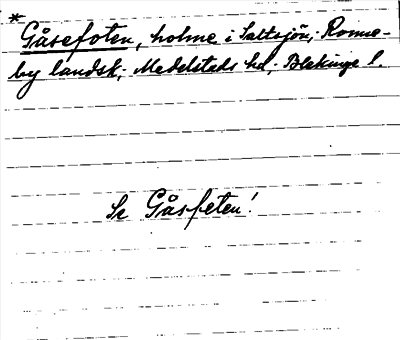 *
Gåsefoten, holme i Saltsjön, Ronne-
by landsk., Medelstads hd, Blekinge l.
Se Gåsfeten!